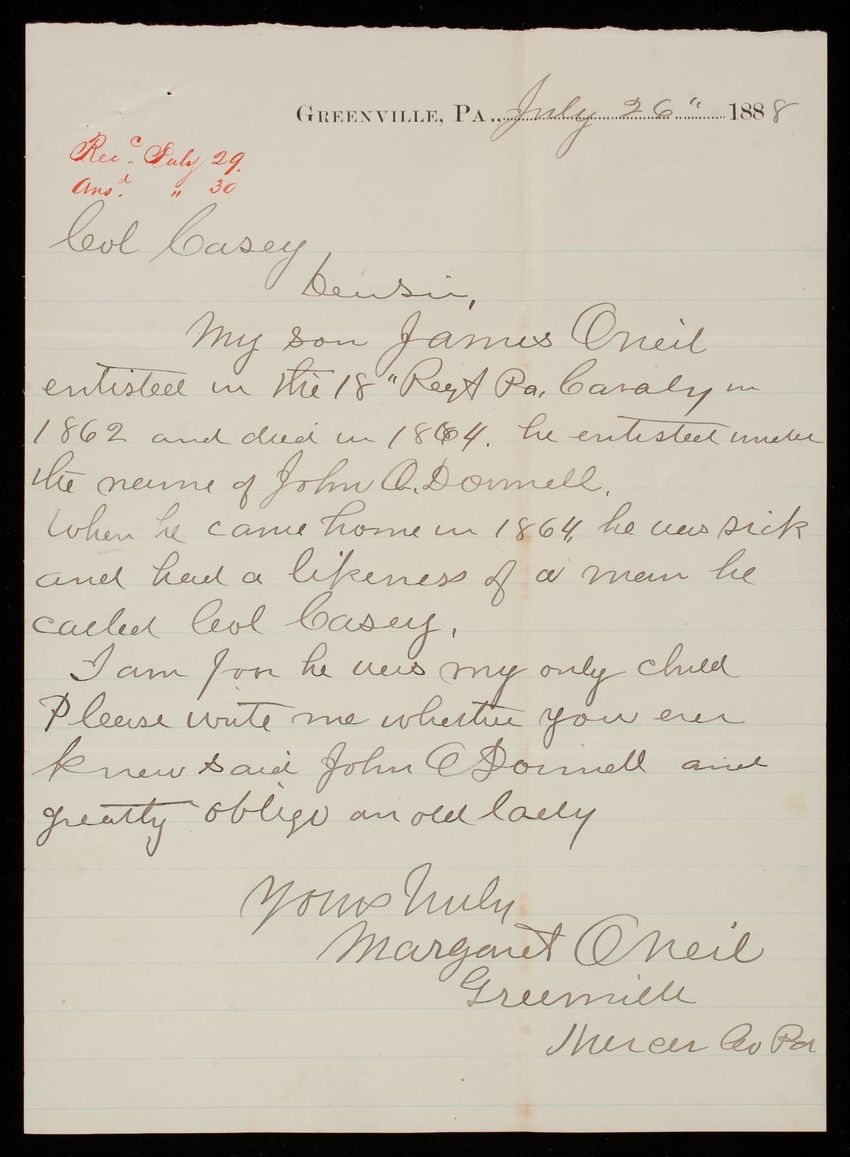 GREENVILLE, PA., July 26" 1888
Recc. July 29.
Ansd. " 30
Col Casey,
Dear Sir,
My son James Oneil
entisted in the 18" Regt Pa. Cavaly in
1862 and died in 1864. he entisted under
the name of John O. Donnell.
When he came home in 1864, he was sick
and had a likeness of a man he
called Col Casey.
I am poor he was my only child
Please write me whether you ever
knew said John ODonnell and
greatly oblige an old lady
Yours truly
Margaret Oneil
Greenville
Mercer Co Pa